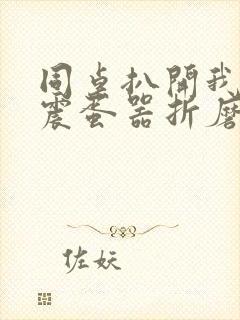 同桌扒開我
震蛋器折磨
佐妖